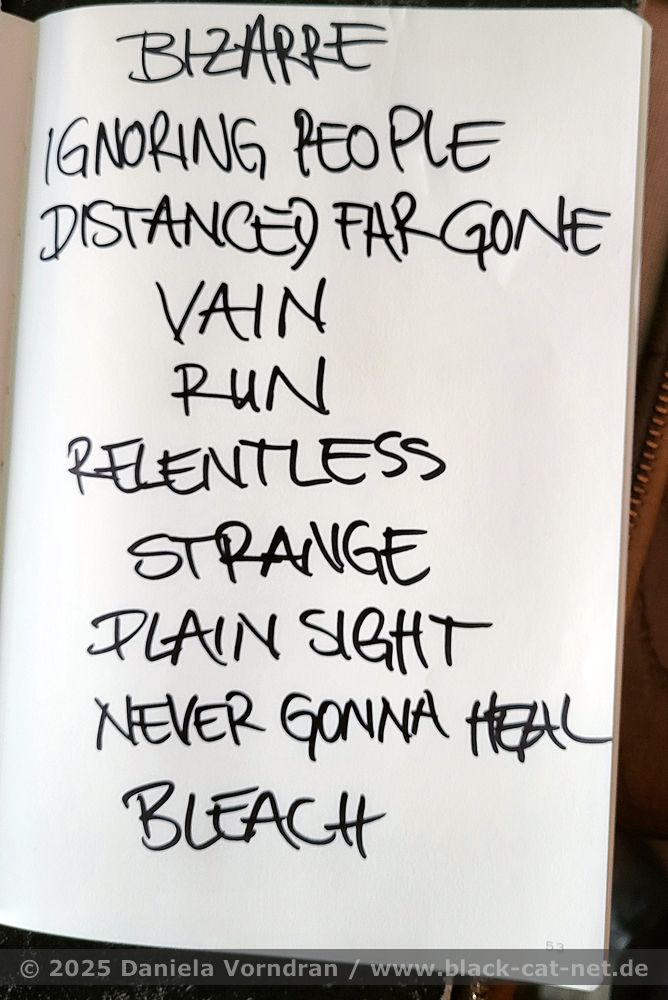 BIZARRE
IGNORING PEOPLE
DISTANCED FAR GONE
VAIN
RUN
RELENTLESS
STRANGE
PLAIN SIGHT
NEVER GONNA HEAL
BLEACH
53
© 2025 Daniela Vorndran / www.black-cat-net.de